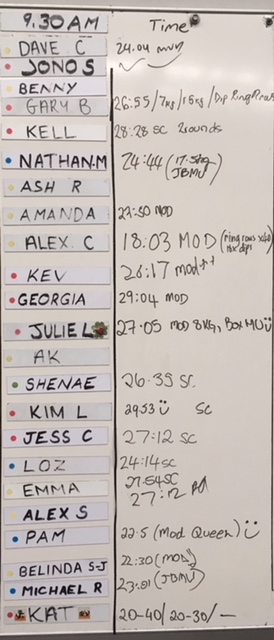 9.30AM Time
DAVE C 24.04
JONO S
BENNY
GARY B 26:55/7kg/15kg/Dip Ring
KELL 28:28 SC 2rounds
NATHAN.M 24:44 (17.5kg JBMU)
ASH R
AMANDA 27:50 MOD
ALEX C 18:03 MOD (ring rows
KEV 26:17 mod++
GEORGIA 29:04 MOD
JULIE L 27:05 MOD 8KG, Box MU
AK
SHENAE 26:39 SC
KIM L 29.53 SC
JESS C 27:12 SC
LOZ 24:14 SC
EMMA 27:54 SC
27:12
ALEX S
PAM 22:5 (Mod Queen)
BELINDA S-J 22:30 (MOD)
MICHAEL R 23:01 (JBMU)
KAT 20-40/20-30/—